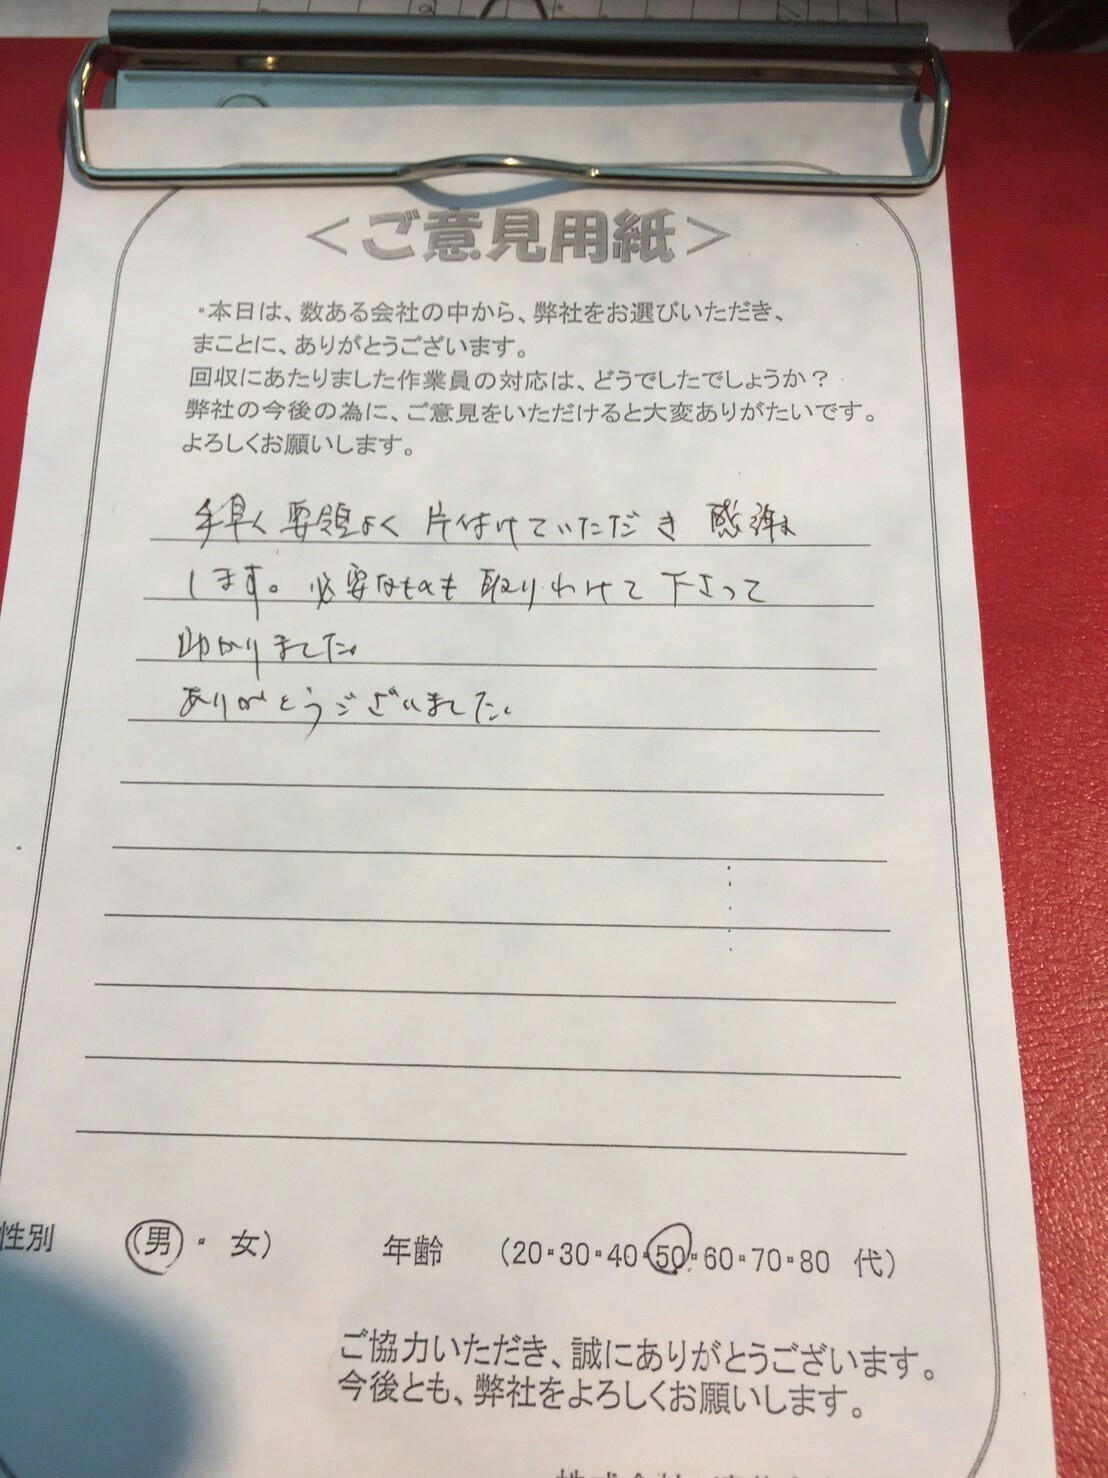 <ご意見用紙>
・本日は、数ある会社の中から、弊社をお選びいただき、
まことに、ありがとうございます。
回収にあたりました作業員の対応は、どうでしたでしょうか？
弊社の今後の為に、ご意見をいただけると大変ありがたいです。
よろしくお願いします。
手早く要領よく片付けていただき感謝
します。必要なものも取りわけて下さって
助かりました。
ありがとうございました。
性別 (男・女) 年齢 (20・30・40・50・60・70・80 代)
ご協力いただき、誠にありがとうございます。
今後とも、弊社をよろしくお願いします。
株式会社